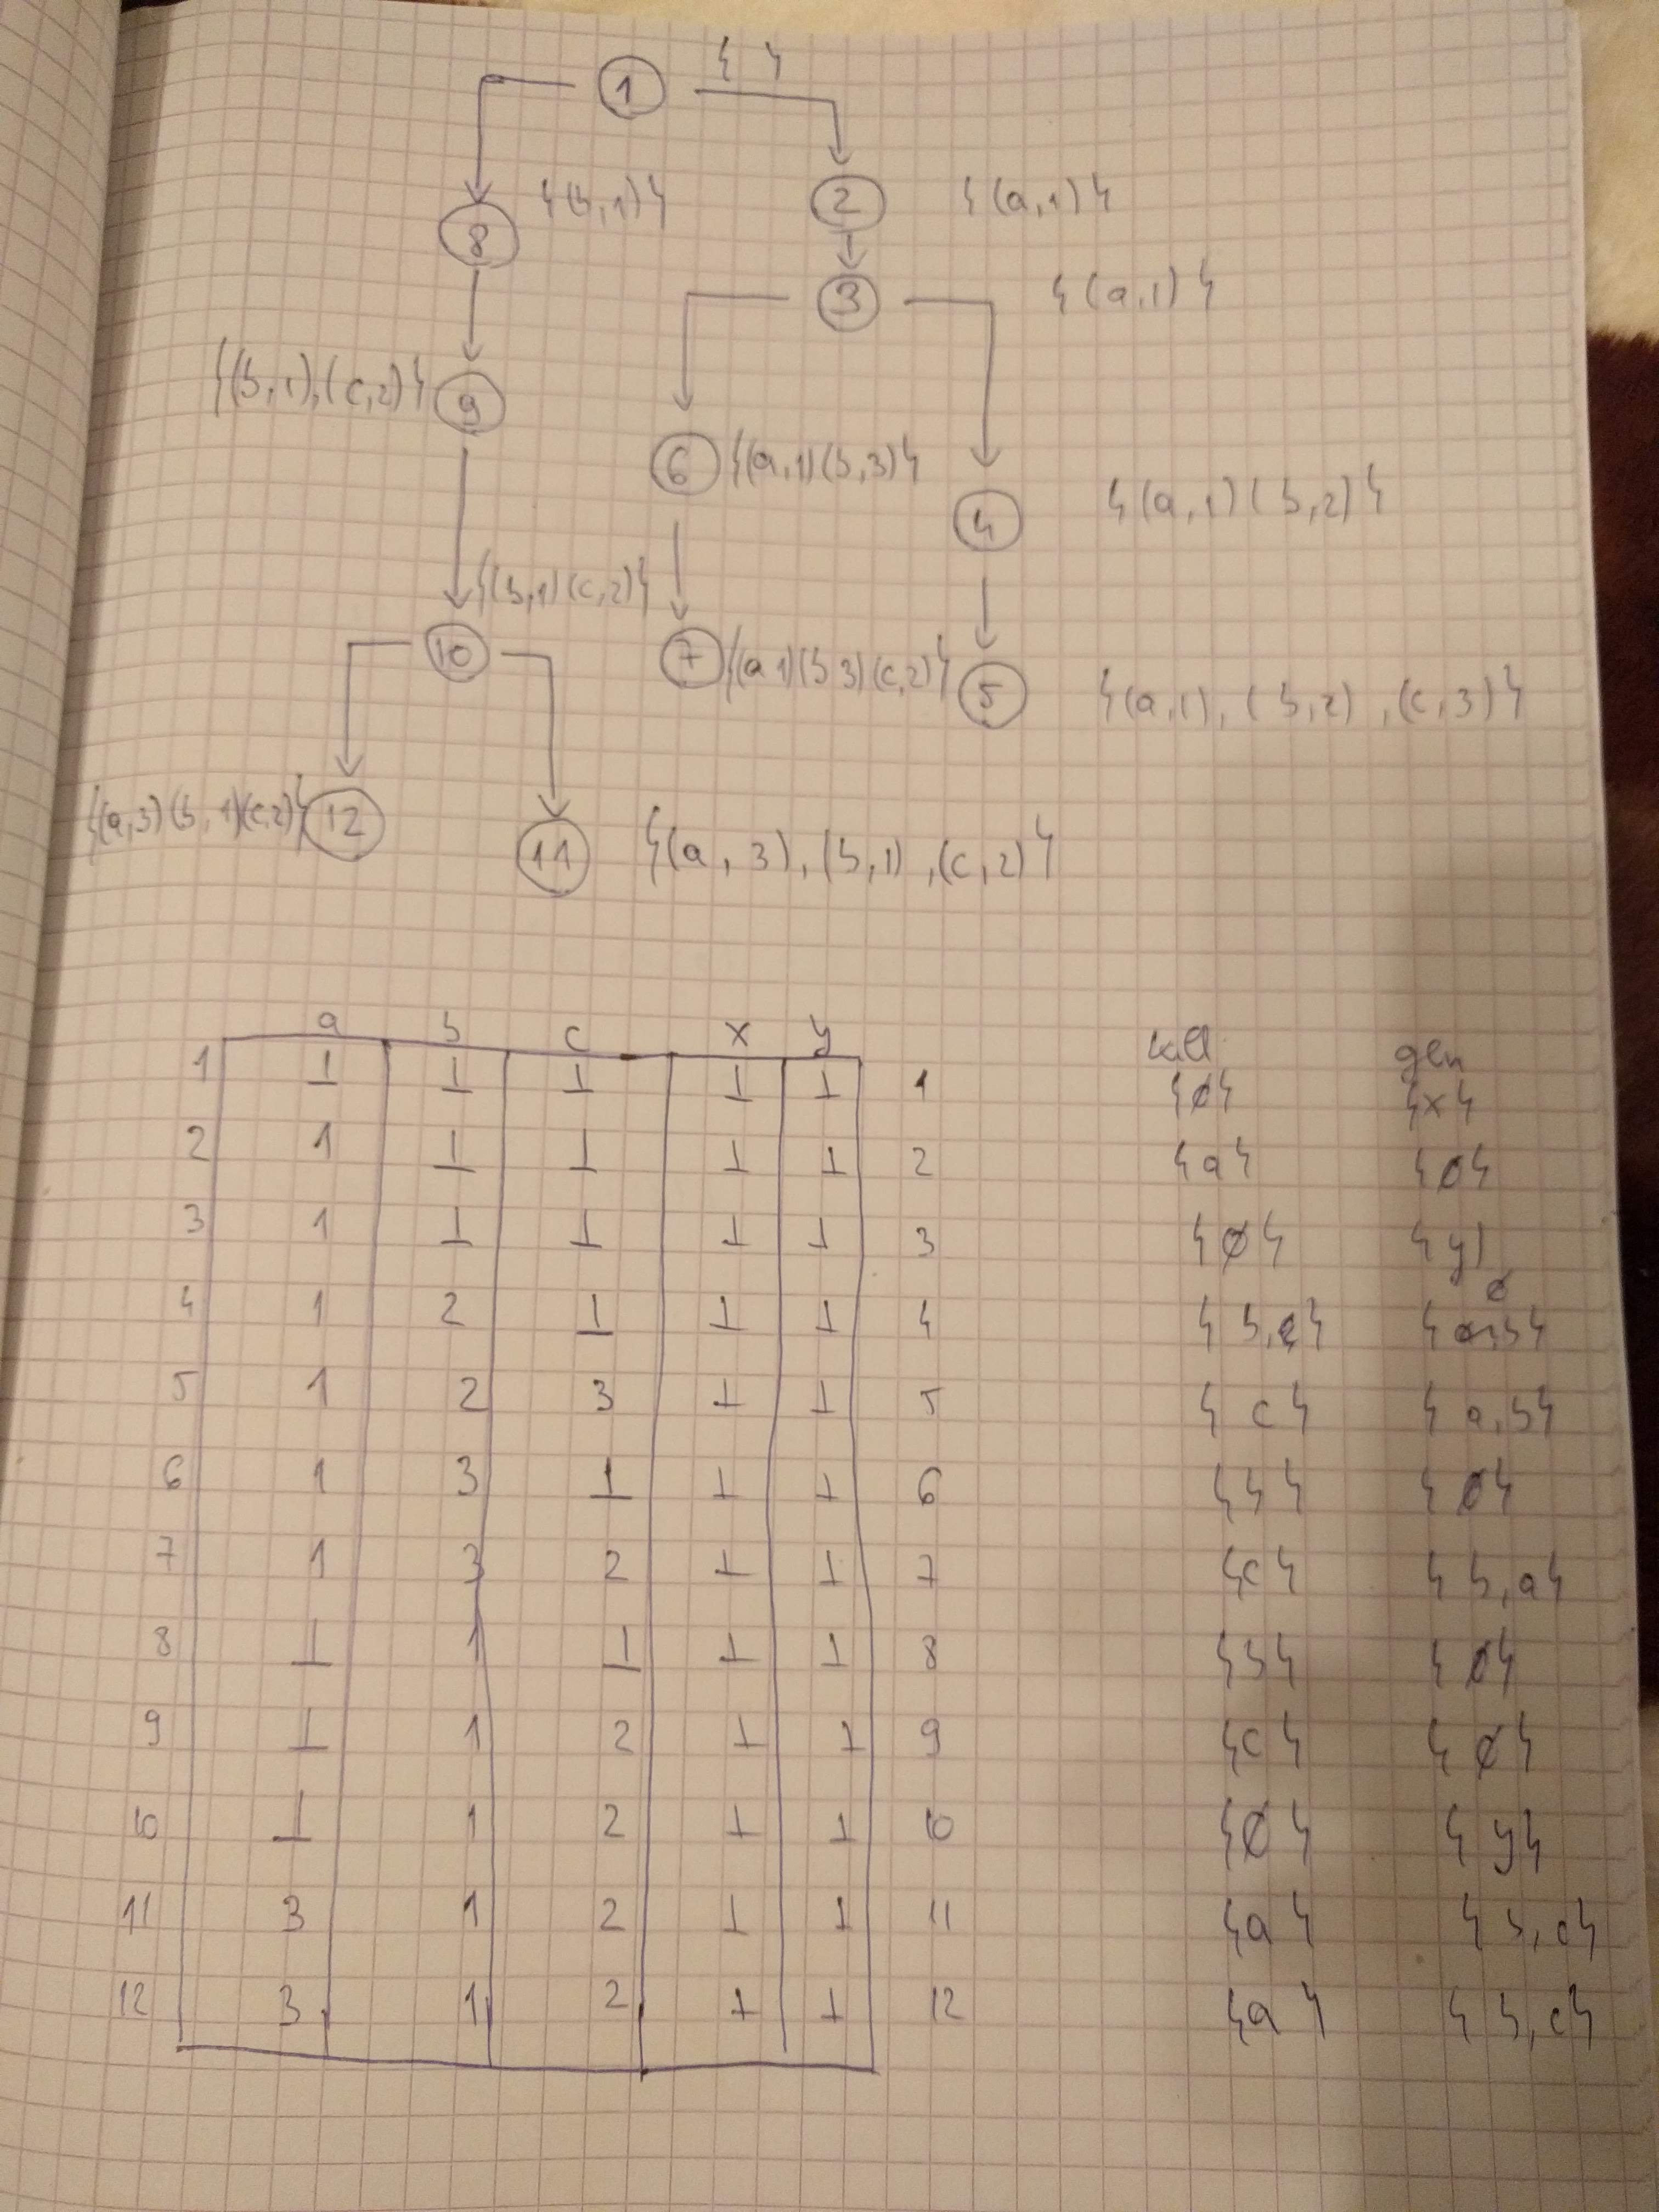 1 { }
8 {(b,1)} 2 {(a,1)}
3 {(a,1)}
{(b,1),(c,2)} 9
6 {(a,1)(b,3)} 4 {(a,1)(b,2)}
{(b,1)(c,2)}
10 7 {(a1)(b3)(c,2)} 5 {(a,1),(b,2),(c,3)}
{(a,3)(b,1)(c,2)} 12 11 {(a,3),(b,1),(c,2)}
a b c x y kill gen
1 ⊥ ⊥ ⊥ ⊥ ⊥ 1 {ø} {x}
2 1 ⊥ ⊥ ⊥ ⊥ 2 {a} {ø}
3 1 ⊥ ⊥ ⊥ ⊥ 3 {ø} {y}
4 1 2 ⊥ ⊥ ⊥ 4 ø
5 1 2 3 ⊥ ⊥ 5 {c} {a,b}
6 1 3 ⊥ ⊥ ⊥ 6 {b} {ø}
7 1 3 2 ⊥ ⊥ 7 {c} {b,a}
8 ⊥ 1 ⊥ ⊥ ⊥ 8 {b} {ø}
9 ⊥ 1 2 ⊥ ⊥ 9 {c} {ø}
10 ⊥ 1 2 ⊥ ⊥ 10 {ø} {y}
11 3 1 2 ⊥ ⊥ 11 {a} {b,c}
12 3 1 2 ⊥ ⊥ 12 {a} {b,c}